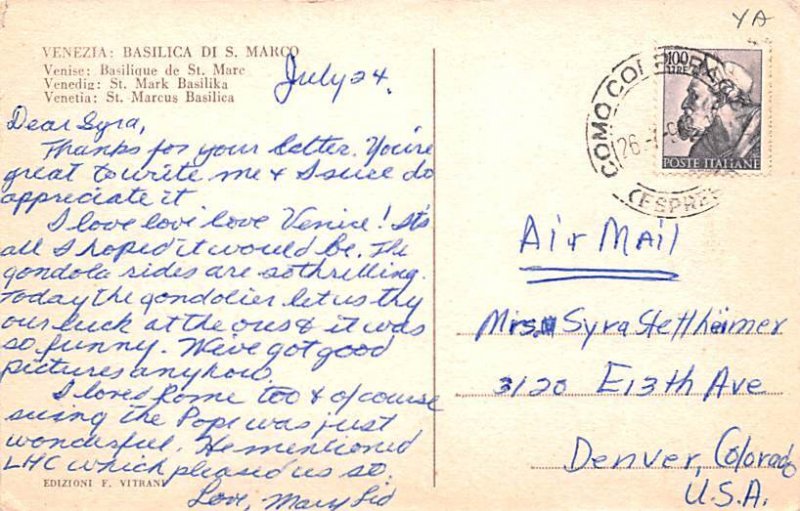 YA
VENEZIA: BASILICA DI S. MARCO
Venise: Basilique de St. Marc
Venedig: St. Mark Basilika
Venetia: St. Marcus Basilica
July 24.
Dear Syra,
Thanks for your letter. You're
great to write me & I sure do
appreciate it
I love love love Venice! It's
all I hoped it would be. The
gondola rides are so thrilling.
Today the gondolier let us try
our luck at the oars & it was
so funny. We've got good
pictures anyhow.
I loved Rome too & of course
seeing the Pope was just
wonderful. He mentioned
LHC which pleased us so.
Love, Mary Sid
EDIZIONI F. VITRANI
100
LIRE
POSTE ITALIANE
COMO
26.
ESPRE
Air Mail
Mrs. Syra Stettheimer
3120 E 13th Ave
Denver, Colorado
U.S.A.